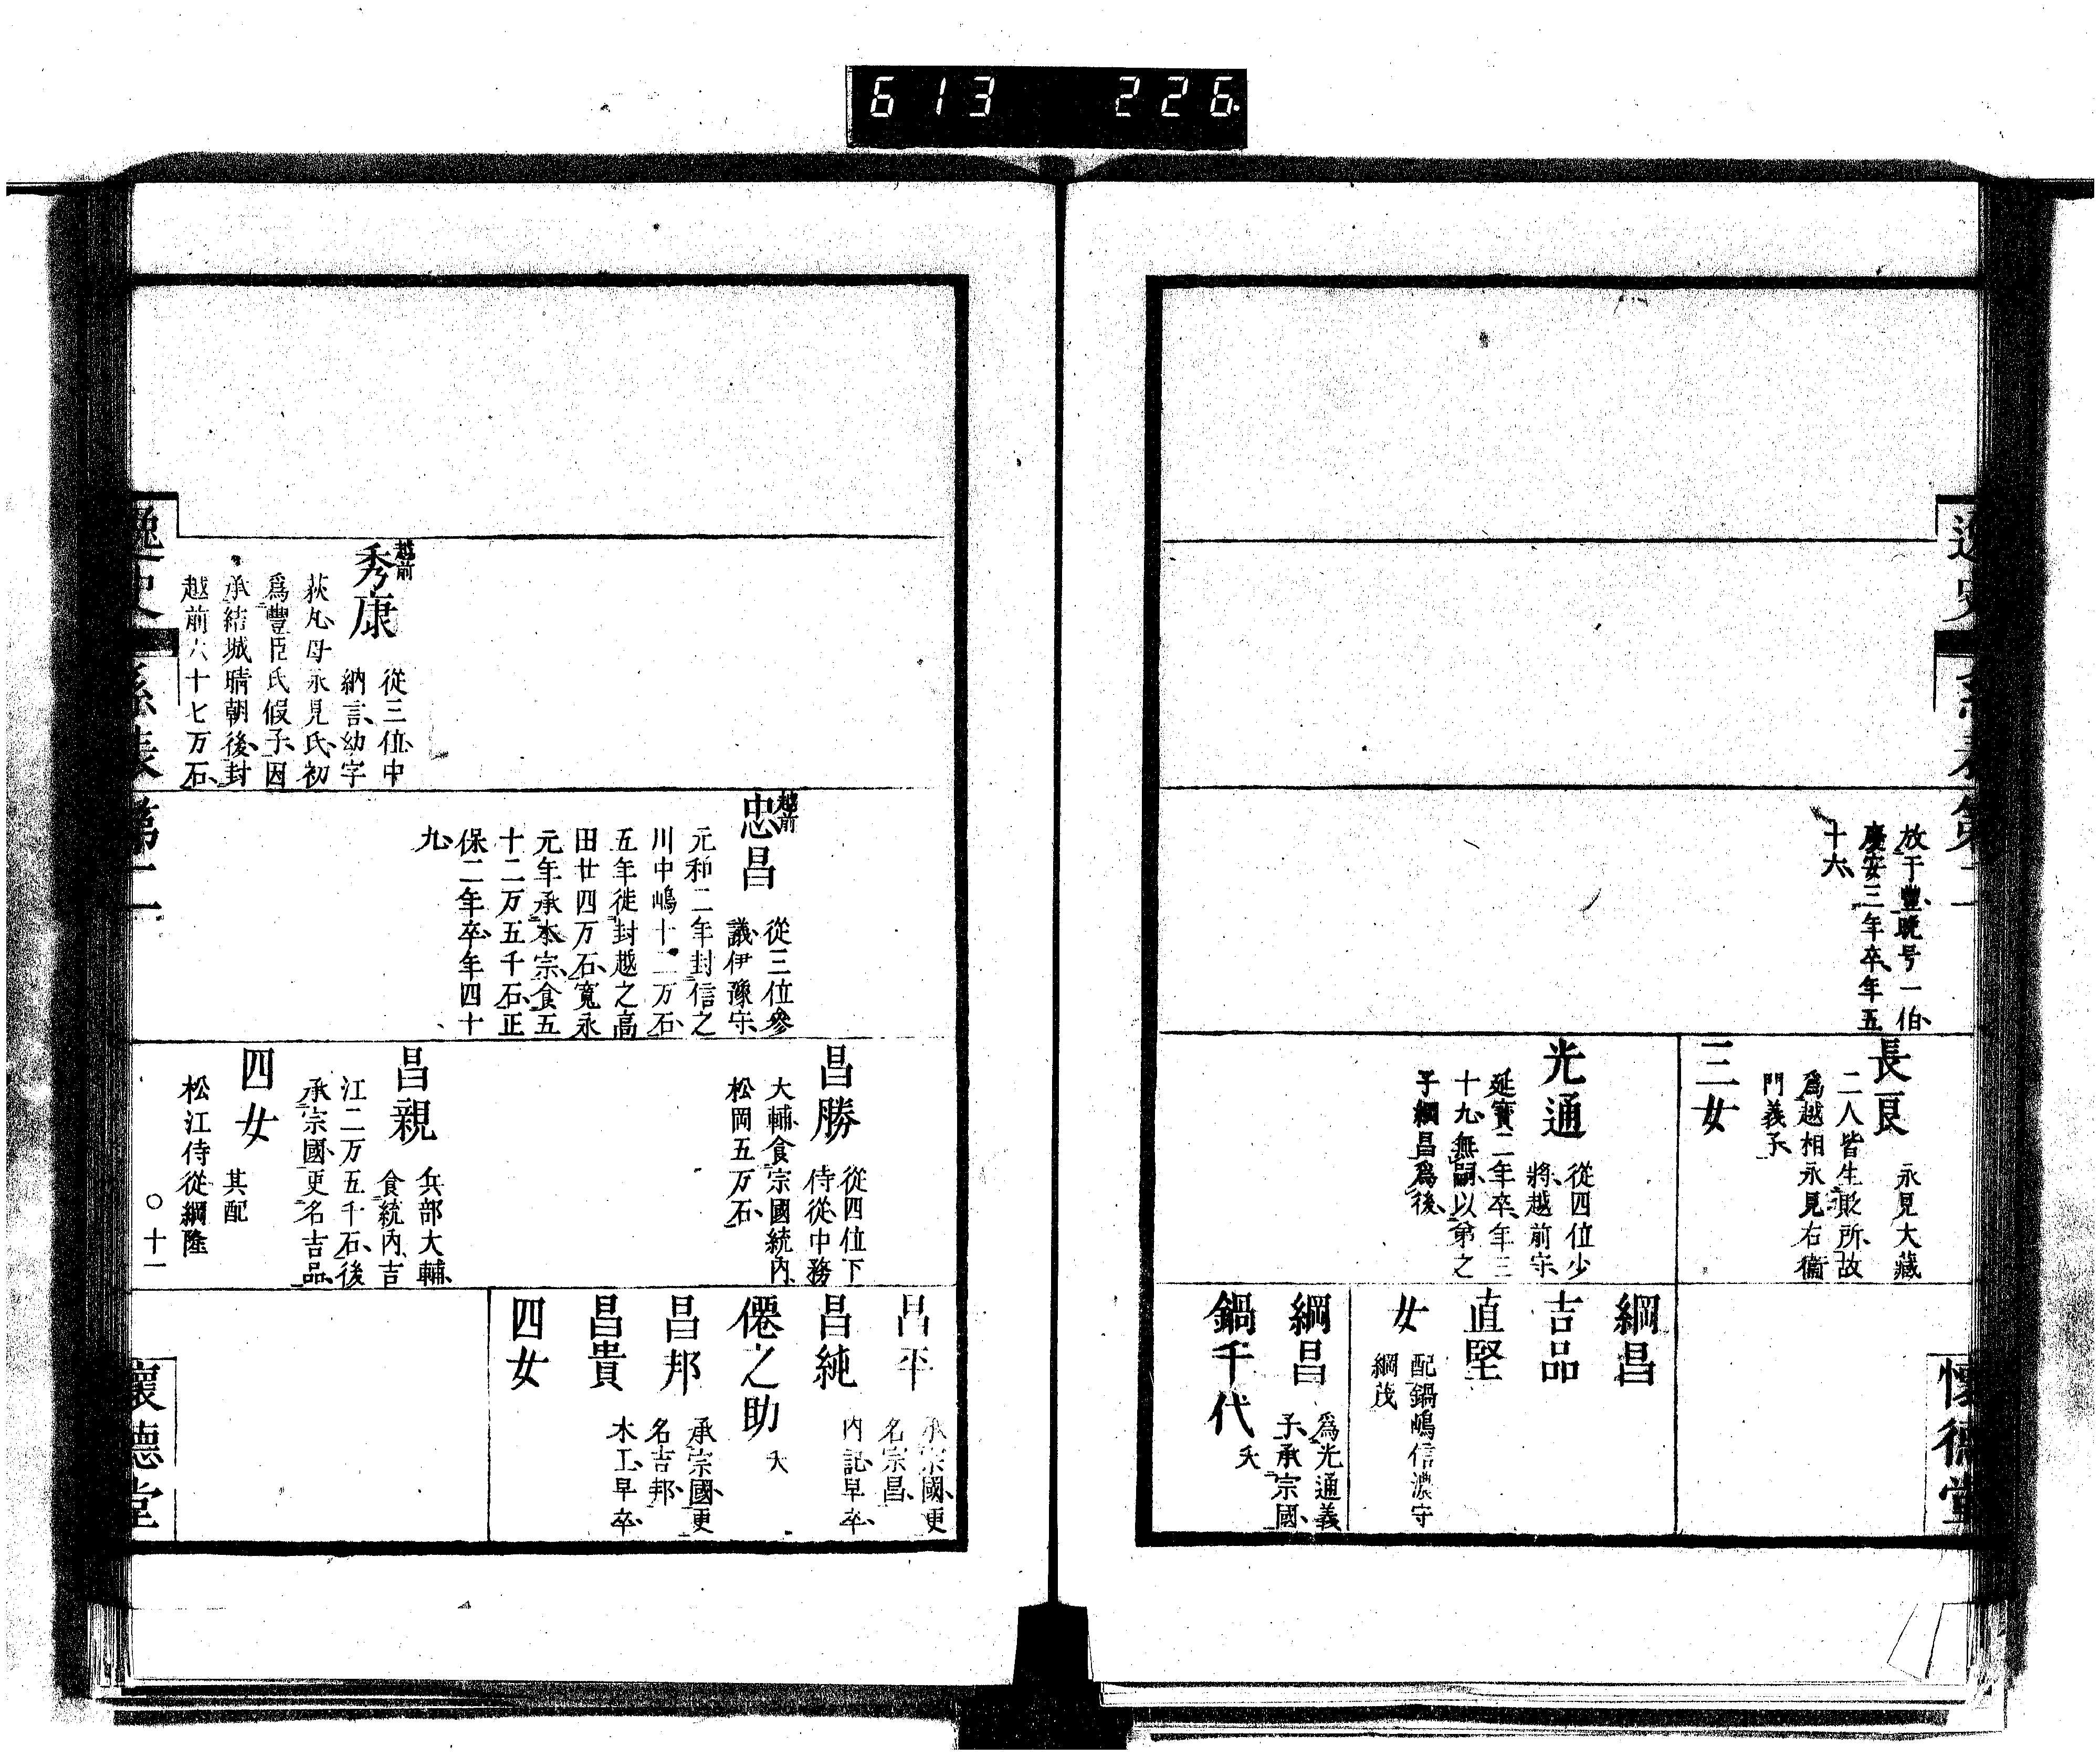 613 226
逸史
系表第二
懷德堂
放于豐、晚号一伯、
慶安三年卒、年五
十六、
長良
永見大藏
二人皆生敗所、故
爲越相永見右衞
門義子、
三女
光通
從四位少
將、越前守、
延寶二年卒、年三
十九、無嗣、以弟之
子綱昌爲後、
綱昌
吉品
直堅
女
配鍋嶋信濃守
綱茂
綱昌
爲光通義
子、承宗國、
鍋千代
夭
越前
秀康
從三位、中
納言、幼字
荻丸、母永見氏、初
爲豐臣氏假子、因
承結城晴朝後、封
越前六十七万石、
越前
忠昌
從三位參
議、伊豫守、
元和二年封信之
川中嶋十二万石、
五年徙封越之高
田廿四万石、寬永
元年承本宗、食五
十二万五千石、正
保二年卒、年四十
九、
昌勝
從四位下
侍從、中務
大輔、食宗國統內、
松岡五万石、
昌親
兵部大輔、
食統內、吉
江二万五千石、後
承宗國、更名吉品、
四女
其配
松江侍從綱隆
昌平
承宗國、更
名宗昌、
昌純
內記、早卒、
僊之助
夭
昌邦
承宗國、更
名吉邦、
昌貴
木工、早卒、
四女
逸史
系表第二
〇十一
懷德堂